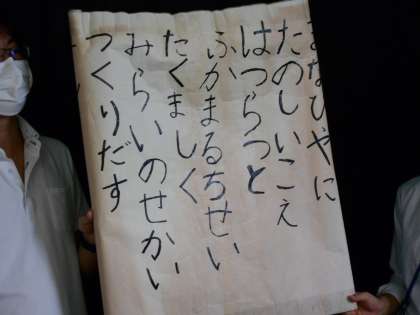 まなびやに
たのしいこえ
はつらつと
ふかまるちせい
たくましく
みらいのせかい
つくりだす